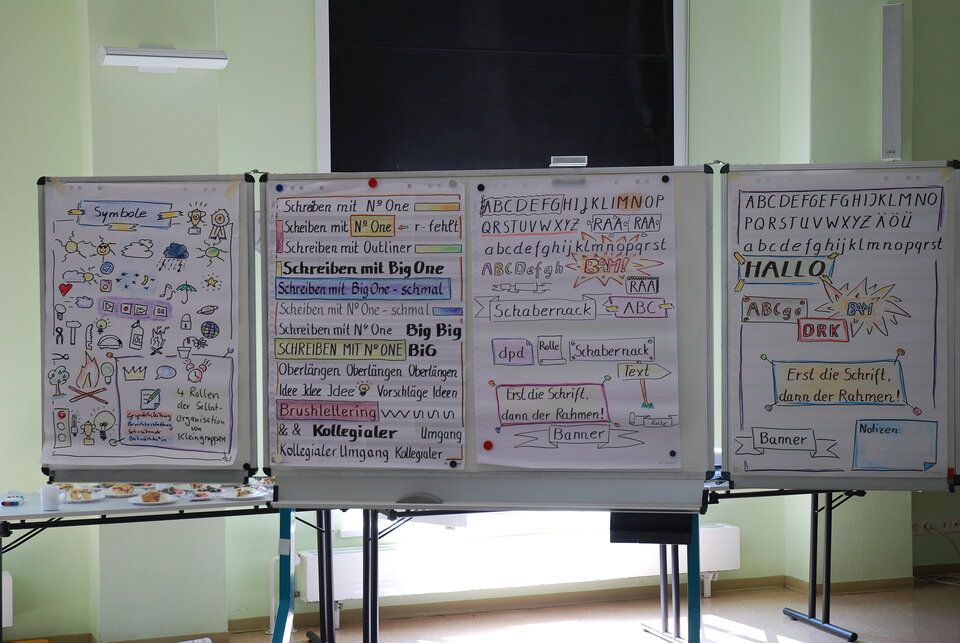 Symbole
4 Rollen
der Selbst-
Organisation
von
Kleingruppen
Text
Schreiben mit Nº One
Scheiben mit Nº One r-fehlt
Schreiben mit Outliner
Schreiben mit Big One
Schreiben mit Big One - schmal
Schreiben mit Nº One - schmal
Schreiben mit Nº One Big Big
SCHREIBEN MIT Nº ONE BiG
Oberlängen Oberlängen Oberlängen
Idee Idee Idee Vorschläge Ideen
Brushlettering
& & Kollegialer Umgang
Kollegialer Umgang Kollegialer
ABCDEFGHIJKLMNOP
QRSTUVWXYZ RAÄ RAA
abcdefghijklmnopqrst
ABCDefgh BAM!
RAA
Schabernack ABC
dpd Rolle Schabernack
Text
Erst die Schrift,
dann der Rahmen!
Rolle
Banner
ABCDEFGEFGHIJKLMNO
PQRSTUVWXYZ ÄÖÜ
abcdefghijklmnopqrst
HALLO
ABCga BAM
DRK
Erst die Schrift,
dann der Rahmen!
Banner
Notizen